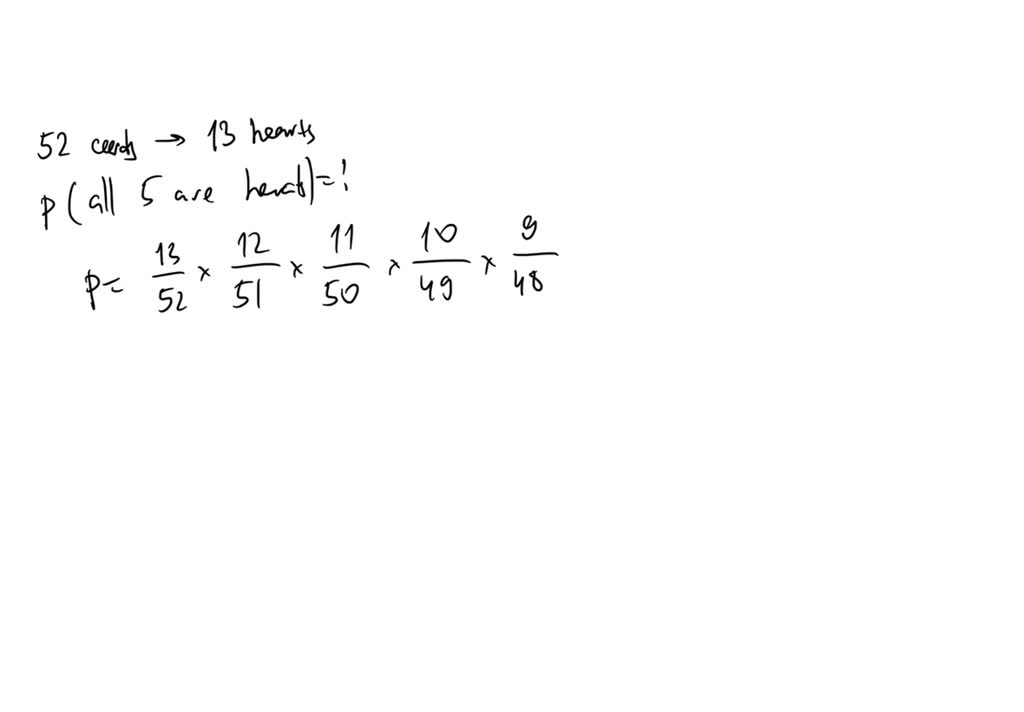 52 cards → 13 hearts
P(all 5 are heart)=?
P= 13/52 × 12/51 × 11/50 × 10/49 × 9/48